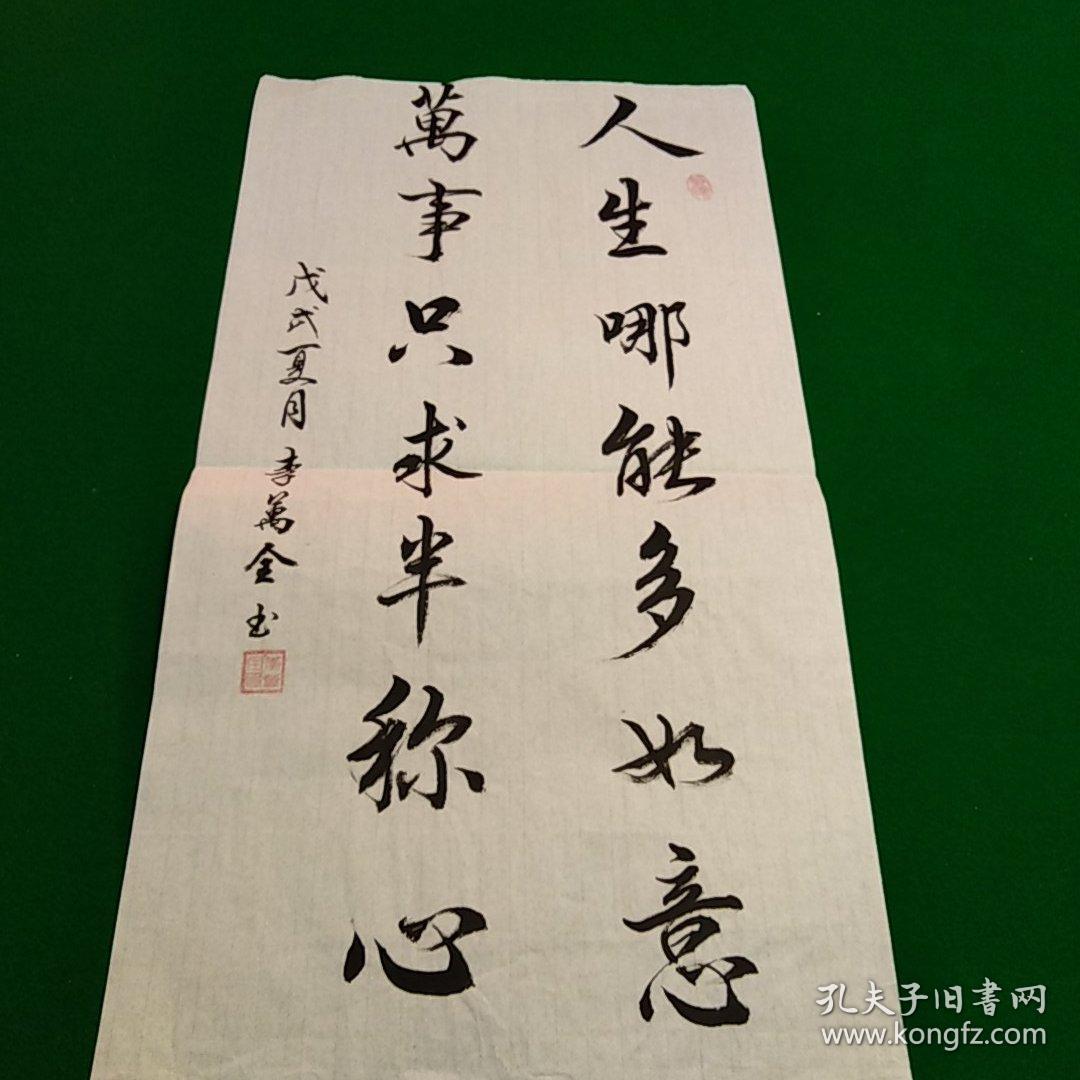 人生哪能多如意
萬事只求半称心
戊戌夏月 李萬全书
孔夫子旧書网
www.kongfz.com